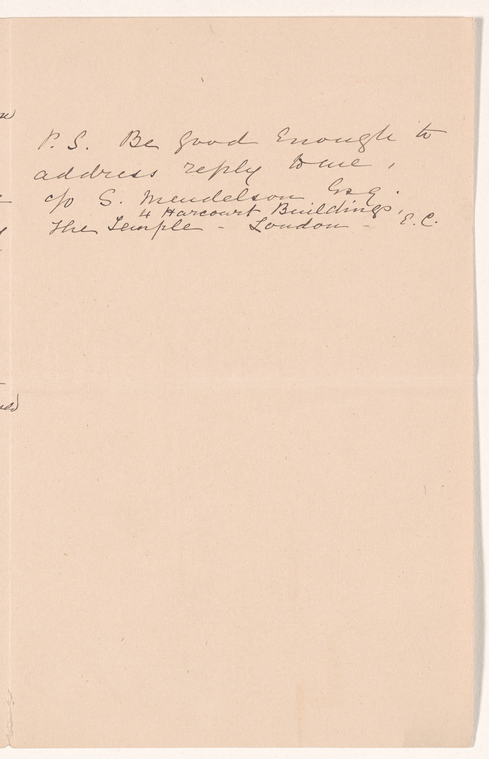 P. S. Be good Enough to
address reply to me,
c/o S. Mendelson Esq.
4 Harcourt Buildings,
The Temple - London - E.C.